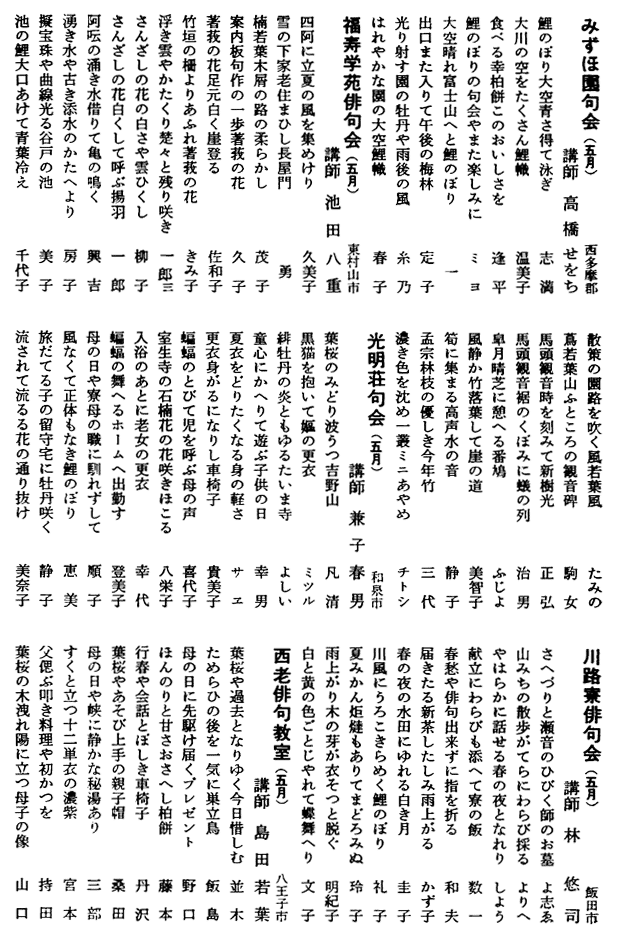 みずほ園句会（五月）
西多摩郡
講師 高橋 せをち
鯉のぼり大空青さ得て泳ぎ 志満
大川の空をたくさん鯉幟 温美子
食べる幸柏餅このおいしさを 逢平
鯉のぼりの句会やまた楽しみに ミヨ
大空晴れ富士山へと鯉のぼり 一
出口また入りて午後の梅林 定子
光り射す園の牡丹や雨後の風 糸乃
はれやかな園の大空鯉幟 春子
福寿学苑俳句会（五月）
東村山市
講師 池田 八重
四阿に立夏の風を集めけり 久美子
雪の下家老住まひし長屋門 勇
楠若葉木屑の路の柔らかし 茂子
案内板句作の一歩著莪の花 久子
著莪の花足元白く崖登る 佐和子
竹垣の柵よりあふれ著莪の花 きみ子
浮き雲やかたくり楚々と残り咲き 一郎三
さんざしの花の白さや雲ひくし 柳子
さんざしの花白くして呼ぶ揚羽 一郎
阿吽の涌き水借りて亀の鳴く 興吉
湧き水や古き添水のかたへより 房子
擬宝珠や曲線光る谷戸の池 美子
池の鯉大口あけて青葉冷え 千代子
散策の園路を吹く風若葉風 たみの
蔦若葉山ふところの観音碑 駒女
馬頭観音時を刻みて新樹光 正弘
馬頭観音裾のくぼみに蟻の列 治男
皐月晴芝に憩へる番鳩 ふじよ
風静か竹落葉して崖の道 美智子
筍に集まる高声水の音 静子
孟宗林枝の優しき今年竹 三代
濃き色を沈め一叢ミニあやめ チトシ
光明荘句会（五月）
和泉市
講師 兼子 春男
葉桜のみどり波うつ吉野山 凡清
黒猫を抱いて嫗の更衣 ミツル
緋牡丹の炎ともゆるたいま寺 よしい
童心にかへりて遊ぶ子供の日 幸男
夏衣をどりたくなる身の軽さ サヱ
更衣身がるになりし車椅子 貴美子
蝙蝠のとびて児を呼ぶ母の声 喜代子
室生寺の石楠花の花咲きほこる 八栄子
入浴のあとに老女の更衣 幸代
蝙蝠の舞へるホームへ出勤す 登美子
母の日や寮母の職に馴れずして 順子
風なくて正体もなき鯉のぼり 恵美
旅だてる子の留守宅に牡丹咲く 静子
流されて流るる花の通り抜け 美奈子
川路寮俳句会（五月）
飯田市
講師 林 悠司
さへづりと瀬音のひびく師のお墓 よ志ゑ
山みちの散歩がてらにわらび採る よりへ
やはらかに話せる春の夜となれり しよう
献立にわらびも添へて寮の飯 数一
春愁や俳句出来ずに指を折る 和夫
届きたる新茶したしみ雨上がる かず子
春の夜の水田にゆれる白き月 圭子
川風にうろこきらめく鯉のぼり 礼子
夏みかん炬燵もありてまどろみぬ 玲子
雨上がり木の芽が衣そつと脱ぐ 明紀子
白と黄の色ごとじやれて蝶舞へり 文子
西老俳句教室（五月）
八王子市
講師 島田 若葉
葉桜や過去となりゆく今日惜しむ 並木
ためらひの後を一気に巣立鳥 飯島
母の日に先駆け届くプレゼント 野口
ほんのりと甘さおさへし柏餅 藤本
行春や会話とぼしき車椅子 丹沢
葉桜やあそび上手の親子帽 桑田
母の日や峡に静かな秘湯あり 三部
すくと立つ十二単衣の濃紫 宮本
父偲ぶ叩き料理や初かつを 持田
葉桜の木洩れ陽に立つ母子の像 山口